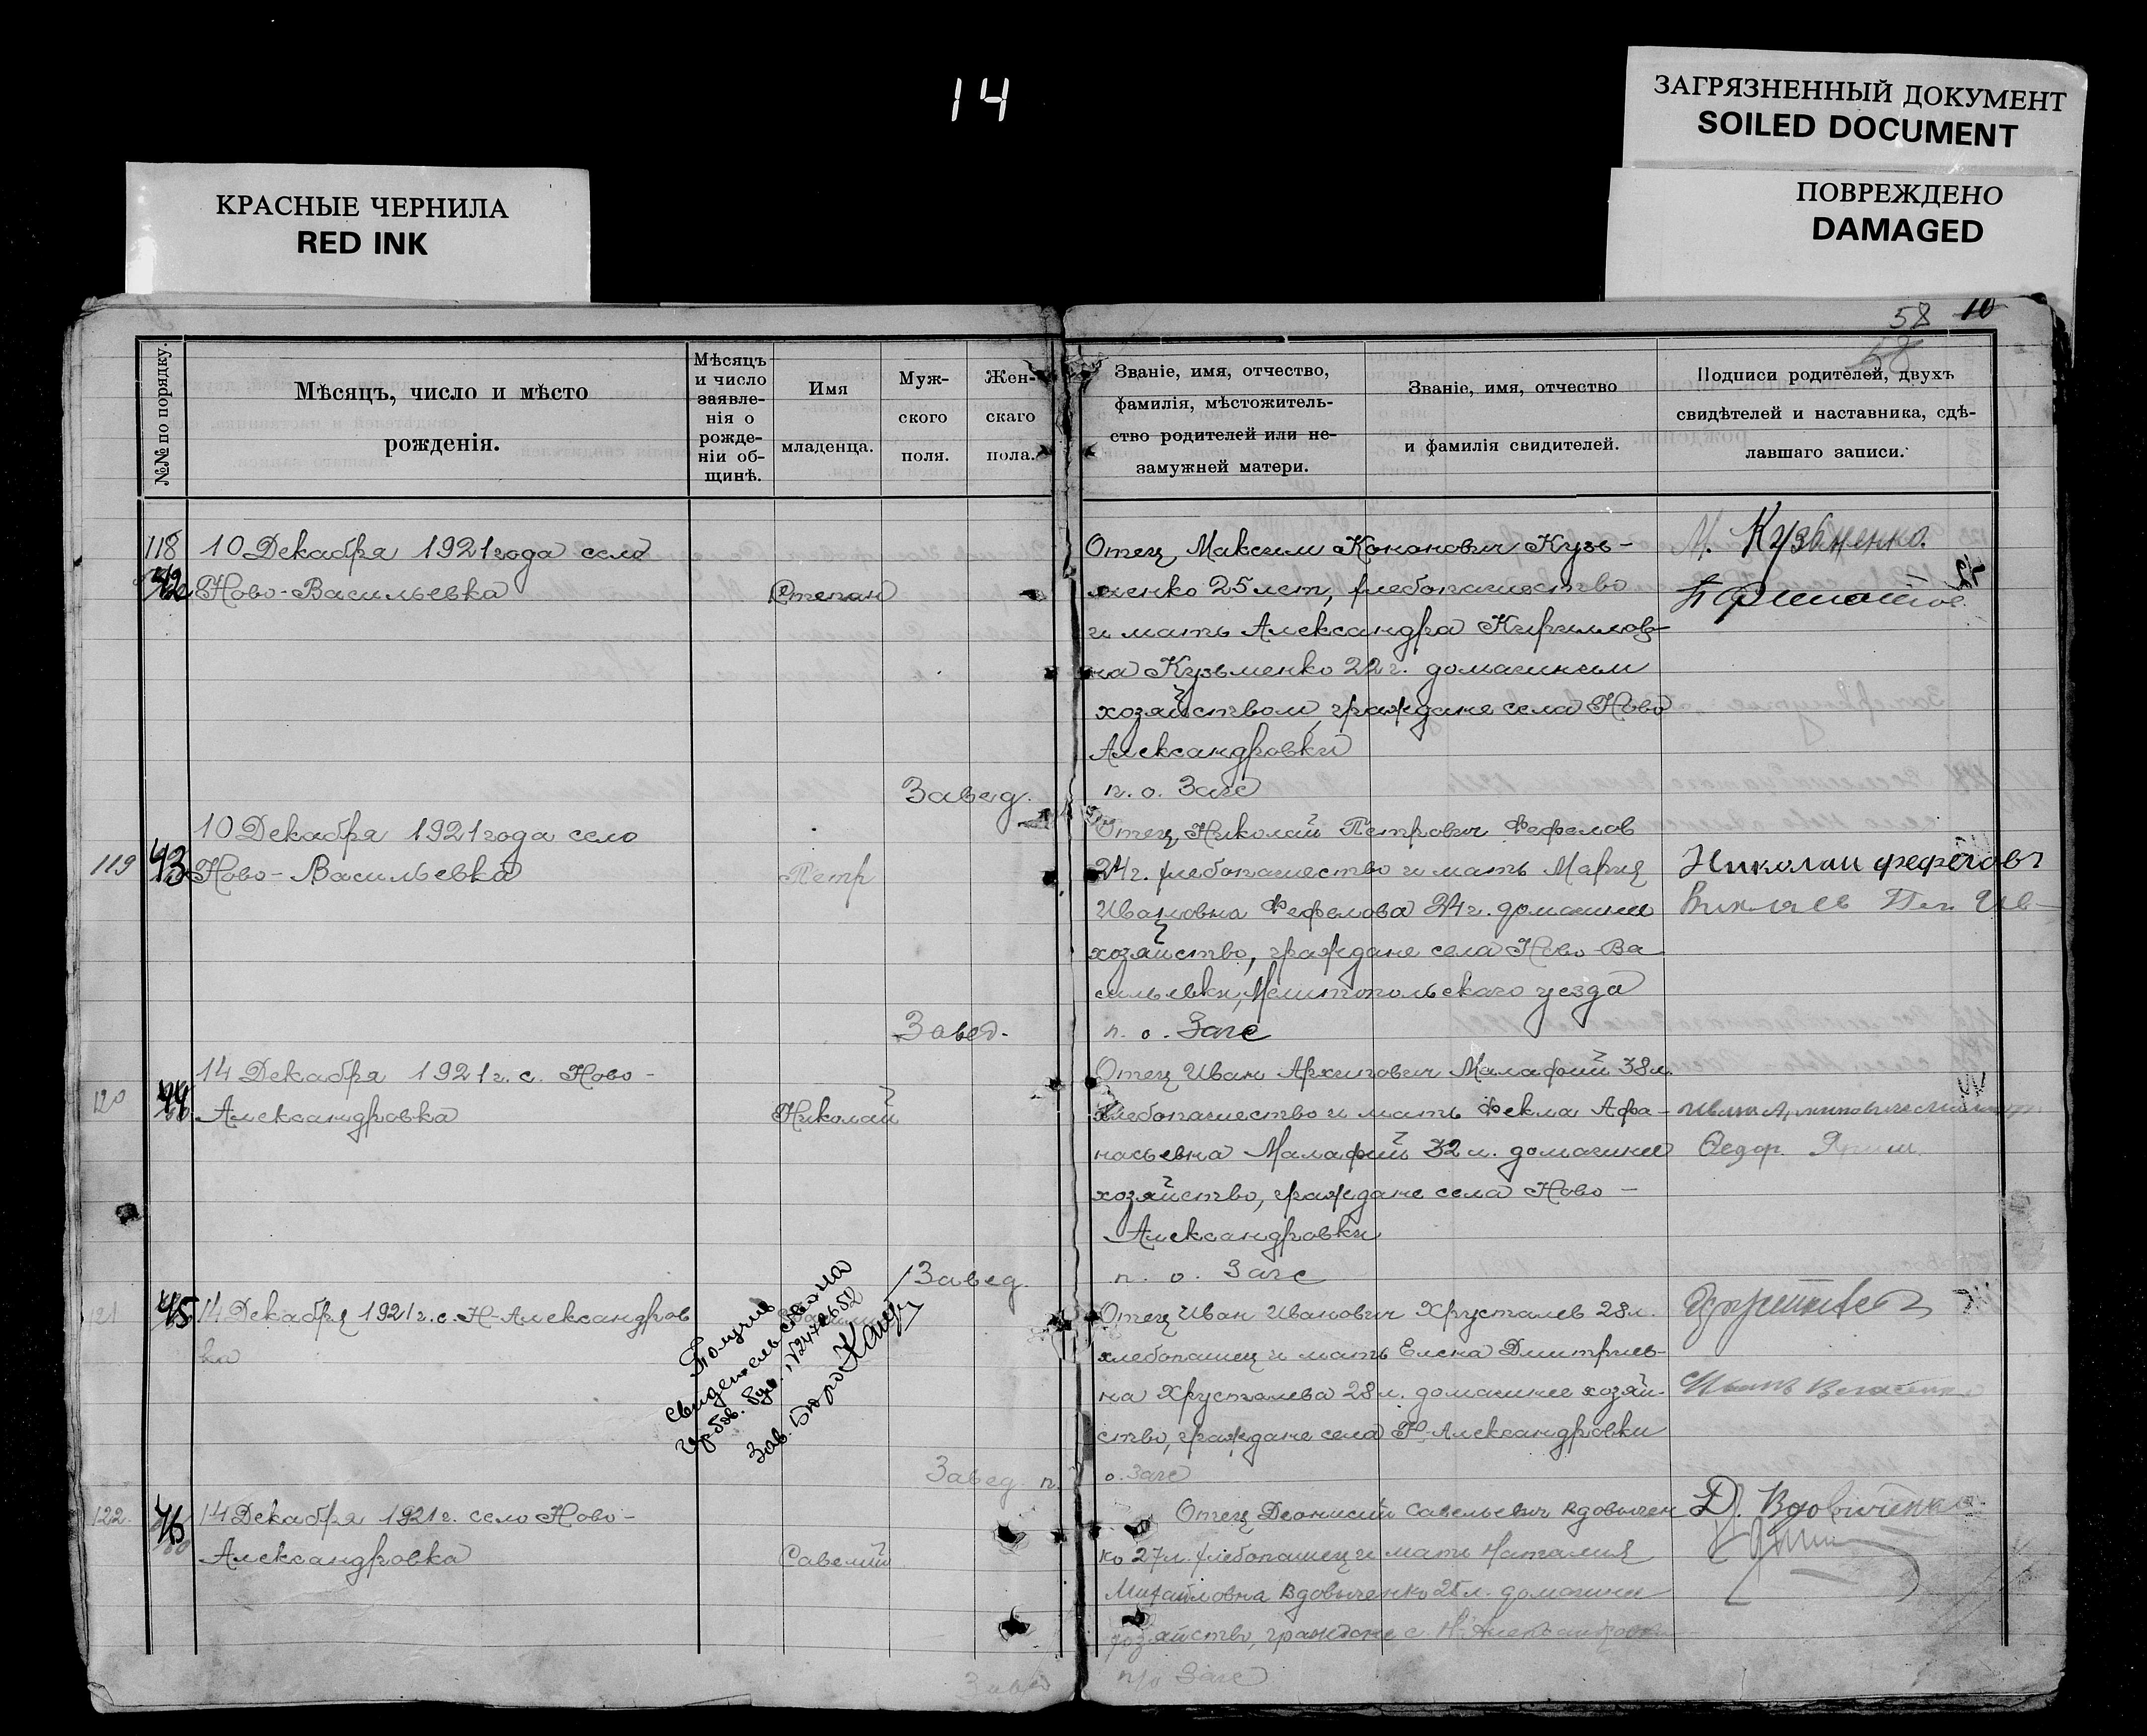 14
ЗАГРЯЗНЕННЫЙ ДОКУМЕНТ
SOILED DOCUMENT
ПОВРЕЖДЕНО
DAMAGED
КРАСНЫЕ ЧЕРНИЛА
RED INK
58 10
58
№№ по порядку.
Мѣсяцъ, число и мѣсто
рожденія.
Мѣсяцъ
и число
заявле-
нія о
рожде-
ніи об-
щинѣ.
Имя
младенца.
Муж-
ского
поля.
Жен-
скаго
пола.
Званіе, имя, отчество,
фамилія, мѣстожитель-
ство родителей или не-
замужней матери.
Званіе, имя, отчество
и фамилія свидителей.
Подписи родителей, двухъ
свидѣтелей и наставника, сдѣ-
лавшаго записи.
118
10 Декабря 1921 года село
Ново-Васильевка
Степан
Отец Максим Кононович Кузь-
менко 25 лет, хлебопашество
и мать Александра Кириллов-
на Кузьменко 22 г. домашним
хозяйством, граждане села Ново
Александровки
М. Кузьменко.
Завед.
п. о. Загс
119
43
10 Декабря 1921 года село
Ново-Васильевка
Петр
Отец Николай Петрович Фефелов
24 г. хлебопашество и мать Мария
Ивановна Фефелова 24 г. домашнее
хозяйство, граждане села Ново-Ва
сильевки, Мелитопольскаго уезда
Николай Фефелов
Завед.
п. о. Загс
120
44
14 Декабря 1921 г. с. Ново-
Александровка
Николай
Отец Иван Архипович Малафий 38 л.
хлебопашество и мать Фекла Афа-
насьевна Малафий 32 л. домашнее
хозяйство, граждане села Ново-
Александровки
Федор
Завед.
п. о. Загс
121
45
14 Декабря 1921 г. с. Н-Александров
ка
Получив
свидетельство на
Зав. Бюро
Отец Иван Иванович Хрусталев 28 л.
хлебопашец и мать Елена Дмитриев-
на Хрусталева 28 л. домашнее хозяй-
ство, граждане села Н-Александровки
Завед. п.
о. Загс
122.
46
14 Декабря 1921 г. село Ново-
Александровка
Савелий
Отец Деонисий Савельевич Вдовичен
ко 27 л. хлебопашец и мать Наталия
Михайловна Вдовыченко 25 л. домашнее
хозяйство, граждане с. Н-Александровки
Д. Вдовиченко
Завед
п/о Загс